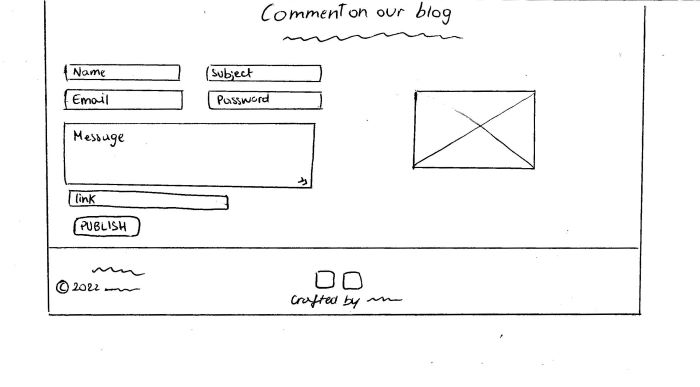 Comment on our blog
Name
Subject
Email
Password
Message
link
PUBLISH
© 2022
Crafted by